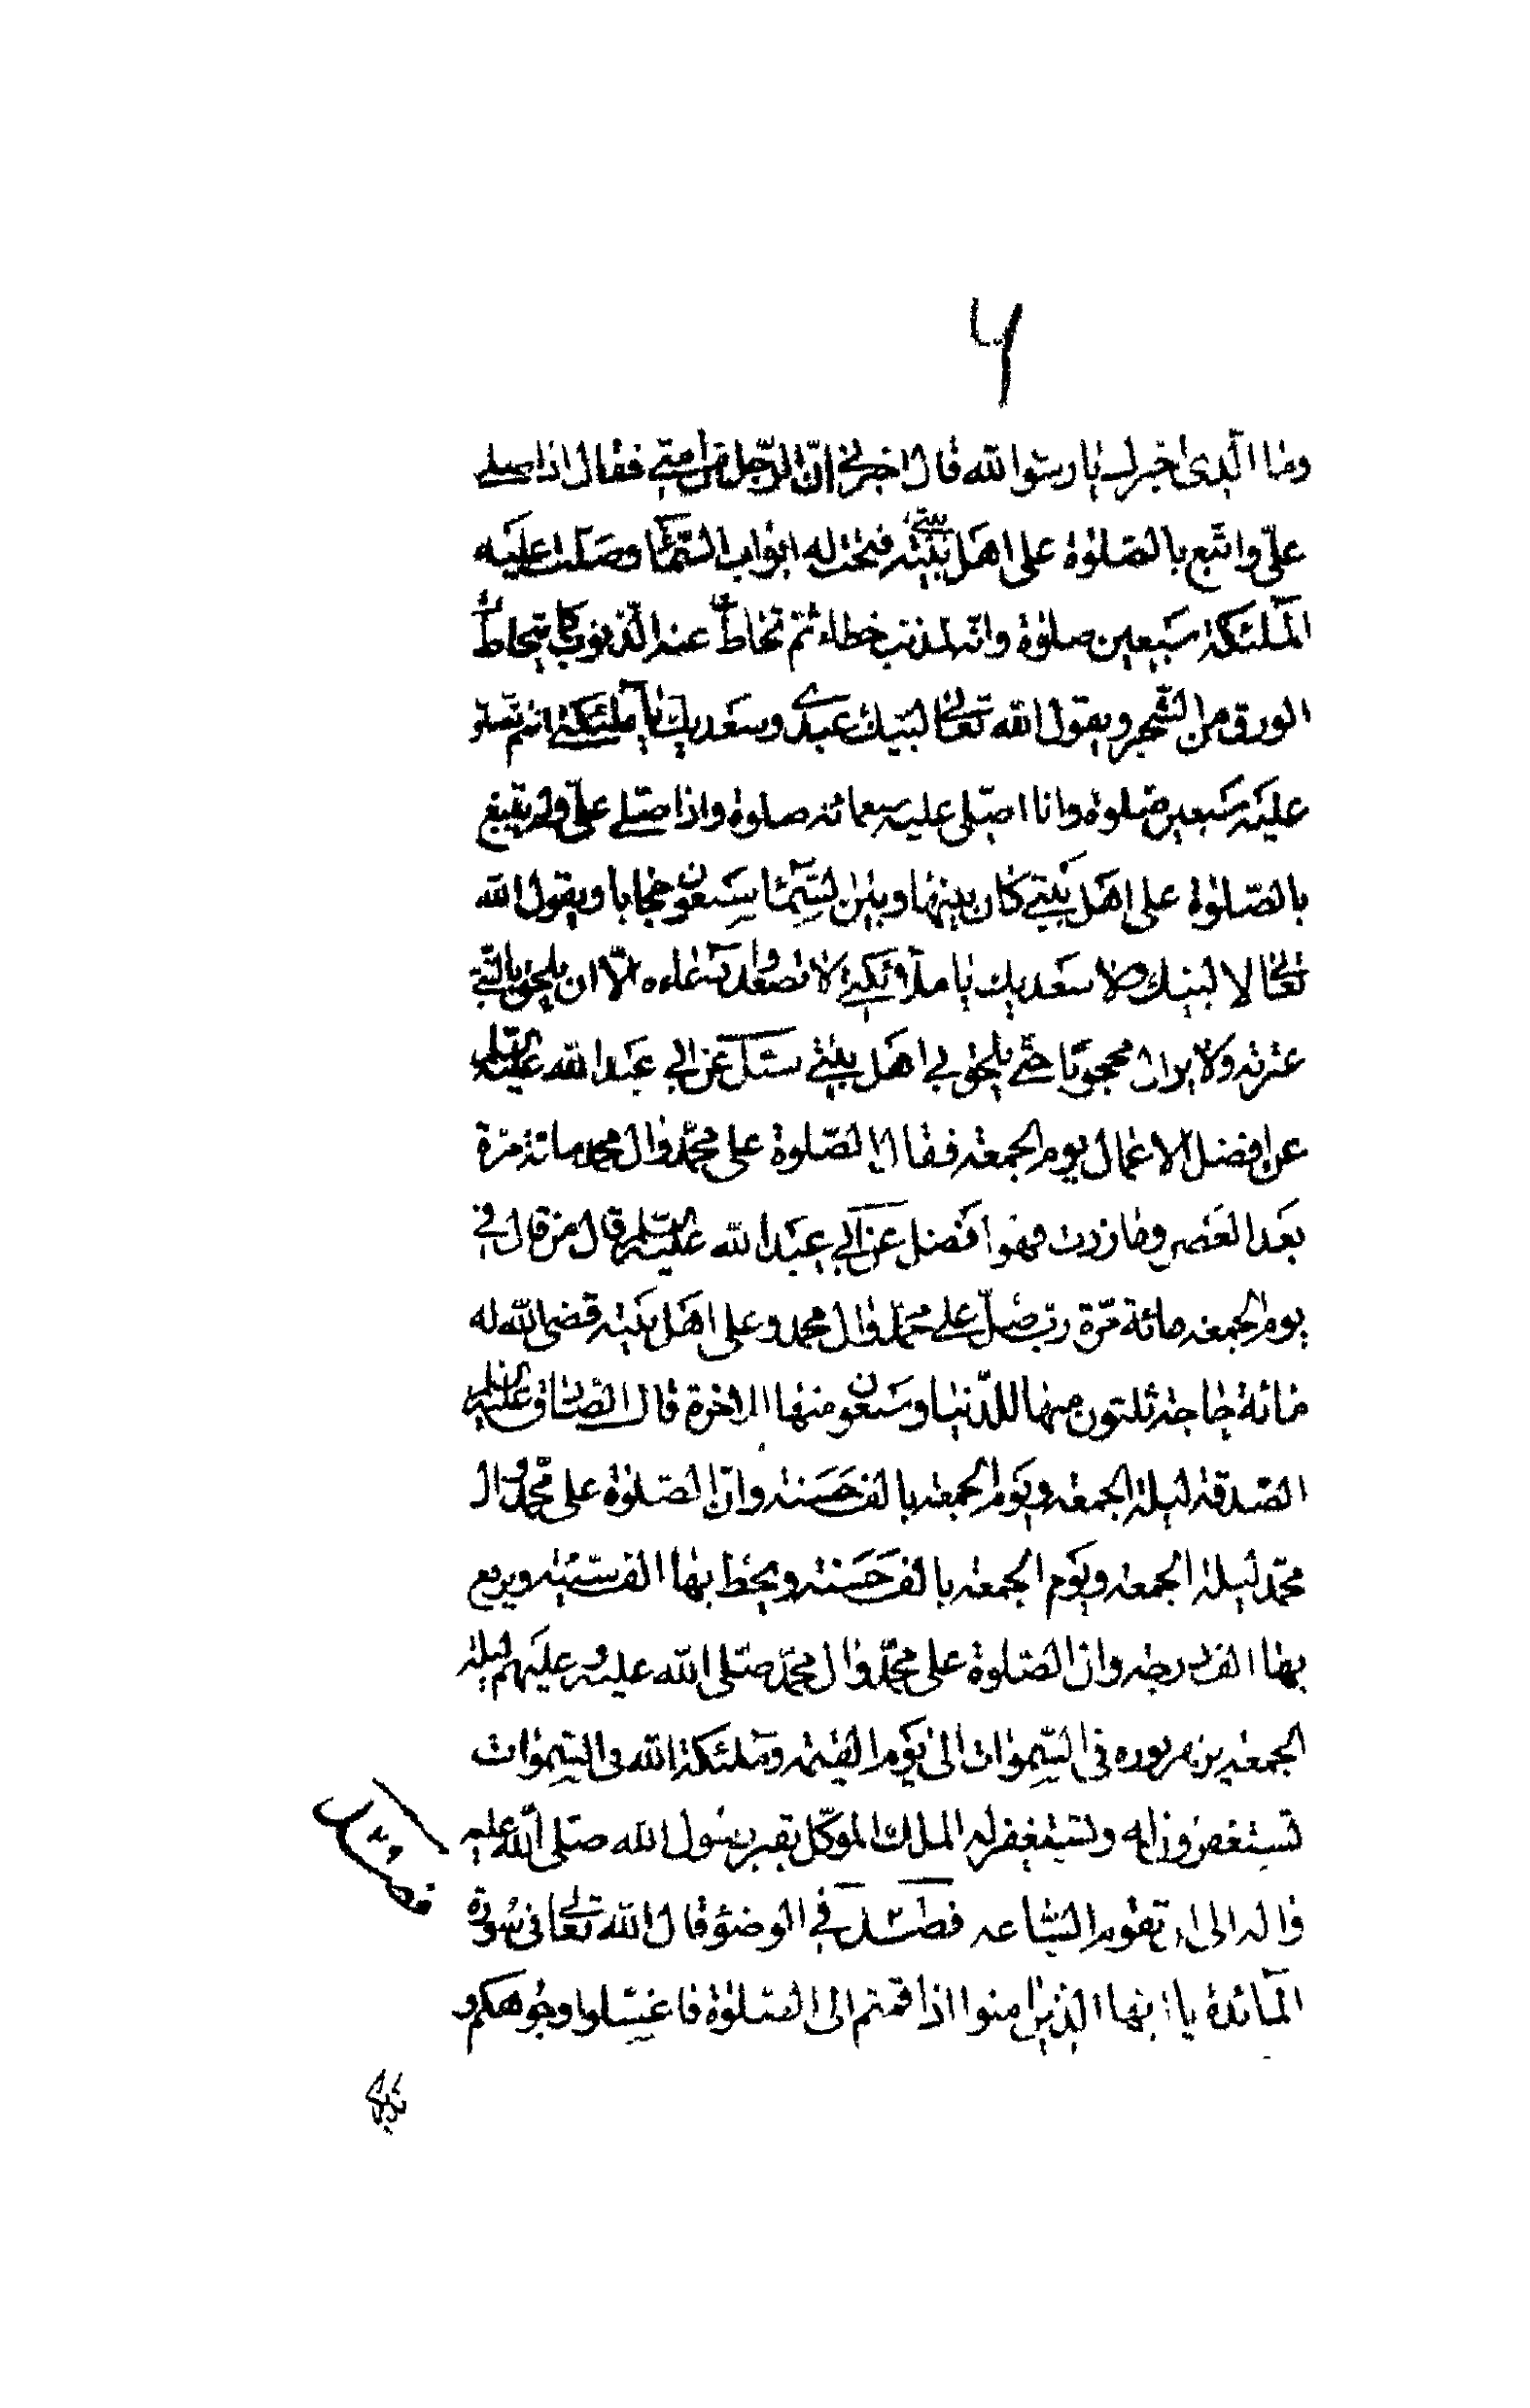 ٦
وما الذی اخبرك یا رسول الله قال اخبرنی انّ الرّجل من امتی فقال اذا صلی
علیّ واتبع بالصلوٰة علی اهل بیته فتحت له ابواب السّمآء وصلّت علیه
الملٰئکة سبعین صلوٰة وانّه لمذنب خطاء ثم تحاطّ عنه الذّنوب کما یتحاطّ
الورق من الشّجر ویقول الله تعالی لبّیك عبدی وسعدیك یا ملئکتی انتم تصلون
علیه سبعین صلوٰة وانا اصلّی علیه سبعمائة صلوة واذا صلی علیّ ولم یتبع
بالصّلوٰة علی اهل بیتی کان بینها وبین السّمآء سبعون حجابا ویقول الله
تعالی لا لبیك ولا سعدیك یا ملآئکتی لا تصعدوا دعاءه الّا ان یلحق بالنبی
عترته ولا یزال محجوبا حتی یلحق بی اهل بیتی سئل عن ابی عبد الله علیه السّلم
عن افضل الاعمال یوم الجمعة فقال الصّلوة علی محمّد وال محمد مائة مرّة
بعد العصر وما زدت فهو افضل عن ابی عبد الله علیه السّلم قال من قال فی
یوم الجمعة مائة مرّة ربّ صلّ علی محمّد وال محمد وعلی اهل بیته قضی الله له
مائة حاجة ثلثون منها للدّنیا وسبعون منها الاخرة قال الصّادق علیه السّلم
الصّدقة لیلة الجمعة ویوم الجمعة بالف حسنة وانّ الصّلوٰة علی محمّد وال
محمّد لیلة الجمعة ویوم الجمعة بالف حسنة ویحط بها الف سیّئة ویرفع
بها الف درجة وان الصّلوة علی محمّد وال محمّد صلی الله علیه وعلیهم لیلة
الجمعة یزهر نوره فی السّموات الی یوم القیٰمة وملئکة الله فی السّموات
تستغفرون له وتستغفر له الملك الموکّل بقبر رسول الله صلی الله علیه
واله الی ان تقوم السّاعة فصــــل فی الوضؤ قال الله تعالی فی سورة
المآئدة یا ایها الذین امنوا اذا قمتم الی الصّلوٰة فاغسلوا وجوهکم و